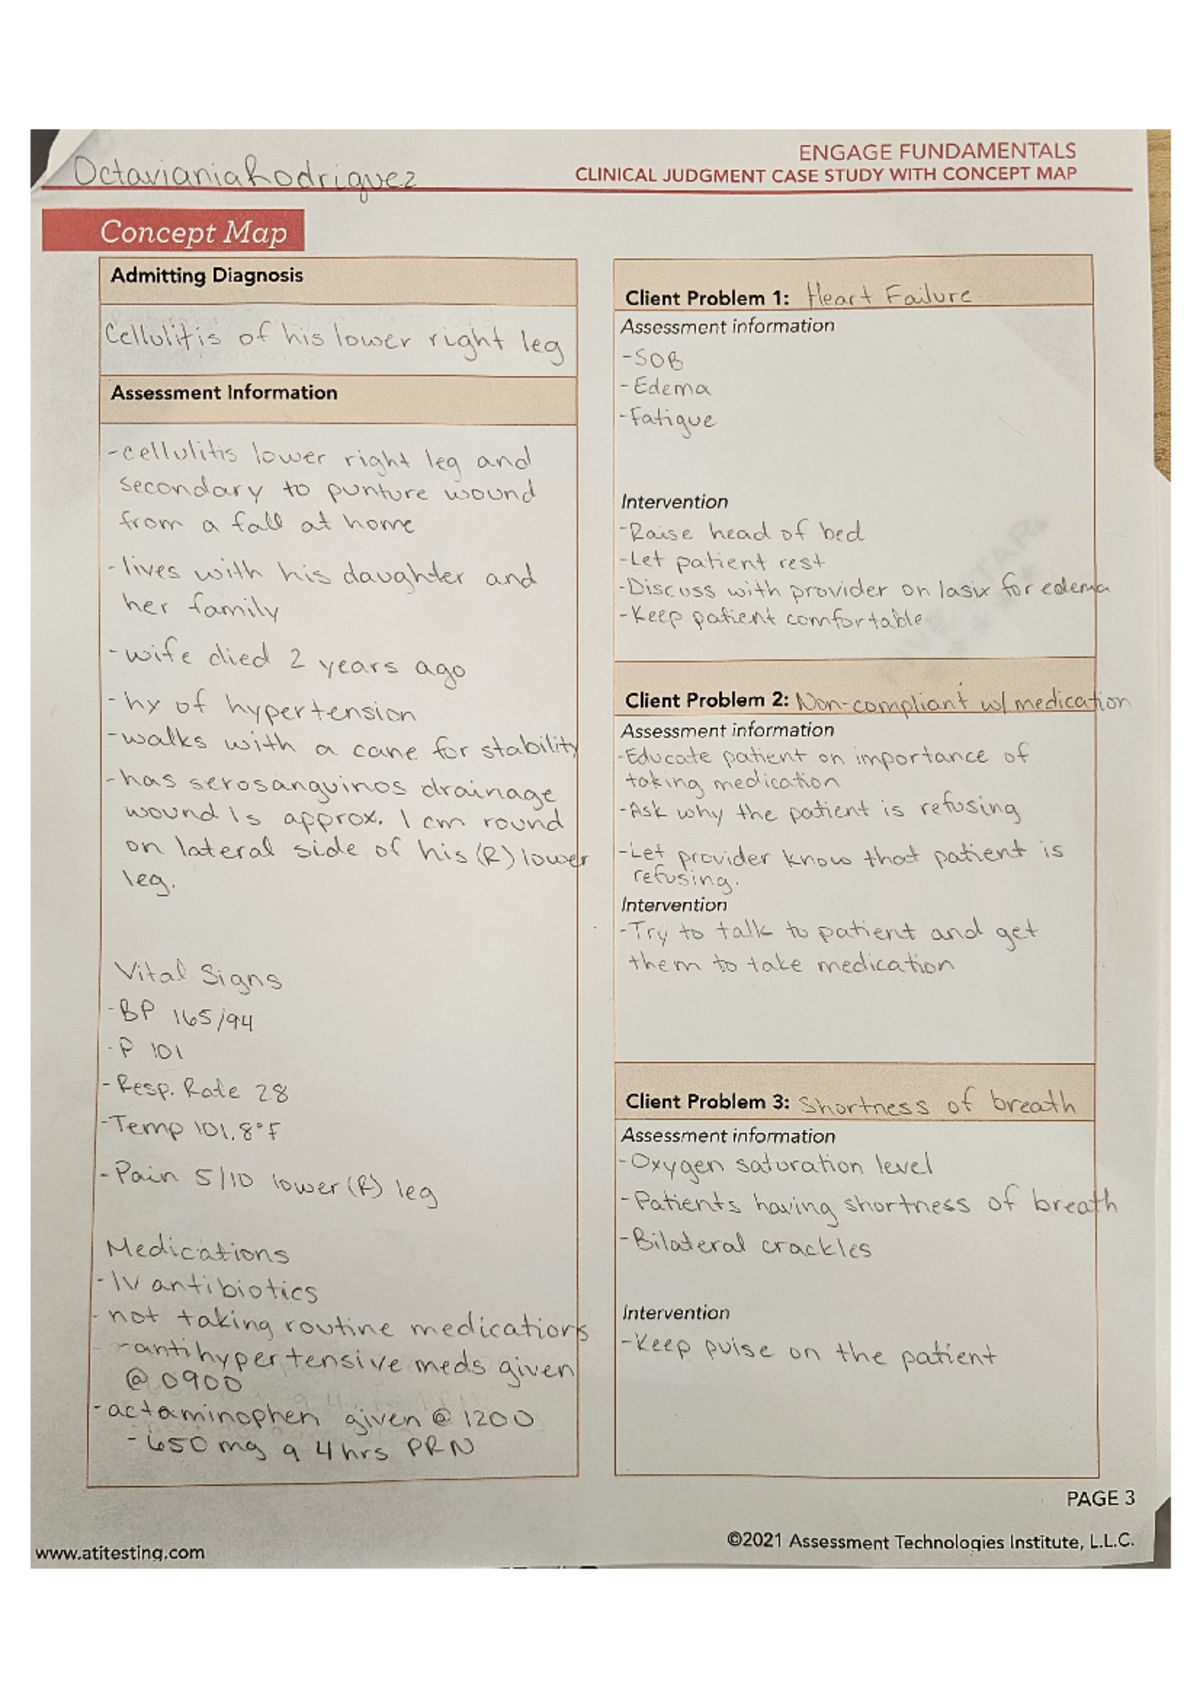 Octaviania Rodriguez
ENGAGE FUNDAMENTALS
CLINICAL JUDGMENT CASE STUDY WITH CONCEPT MAP
Concept Map
Admitting Diagnosis
Cellulitis of his lower right leg
Assessment Information
-cellulitis lower right leg and
secondary to punture wound
from a fall at home
-lives with his daughter and
her family
-wife died 2 years ago
-hx of hypertension
-walks with a cane for stability
-has serosanguinos drainage
wound is approx. 1 cm round
on lateral side of his (R) lower
leg.
Vital Signs
-BP 165/94
-P 101
-Resp. Rate 28
-Temp 101.8°F
-Pain 5/10 lower (R) leg
Medications
-IV antibiotics
-not taking routine medications
-antihypertensive meds given
@ 0900
-actaminophen given @ 1200
-650 mg q 4 hrs PRN
Client Problem 1: Heart Failure
Assessment information
-SOB
-Edema
-Fatigue
Intervention
-Raise head of bed
-Let patient rest
-Discuss with provider on lasix for edema
-Keep patient comfortable
Client Problem 2: Non-compliant w/ medication
Assessment information
-Educate patient on importance of
taking medication
-Ask why the patient is refusing
-Let provider know that patient is
refusing.
Intervention
-Try to talk to patient and get
them to take medication
Client Problem 3: Shortness of breath
Assessment information
-Oxygen saturation level
-Patients having shortness of breath
-Bilateral crackles
Intervention
-Keep pulse on the patient
PAGE 3
www.atitesting.com
©2021 Assessment Technologies Institute, L.L.C.